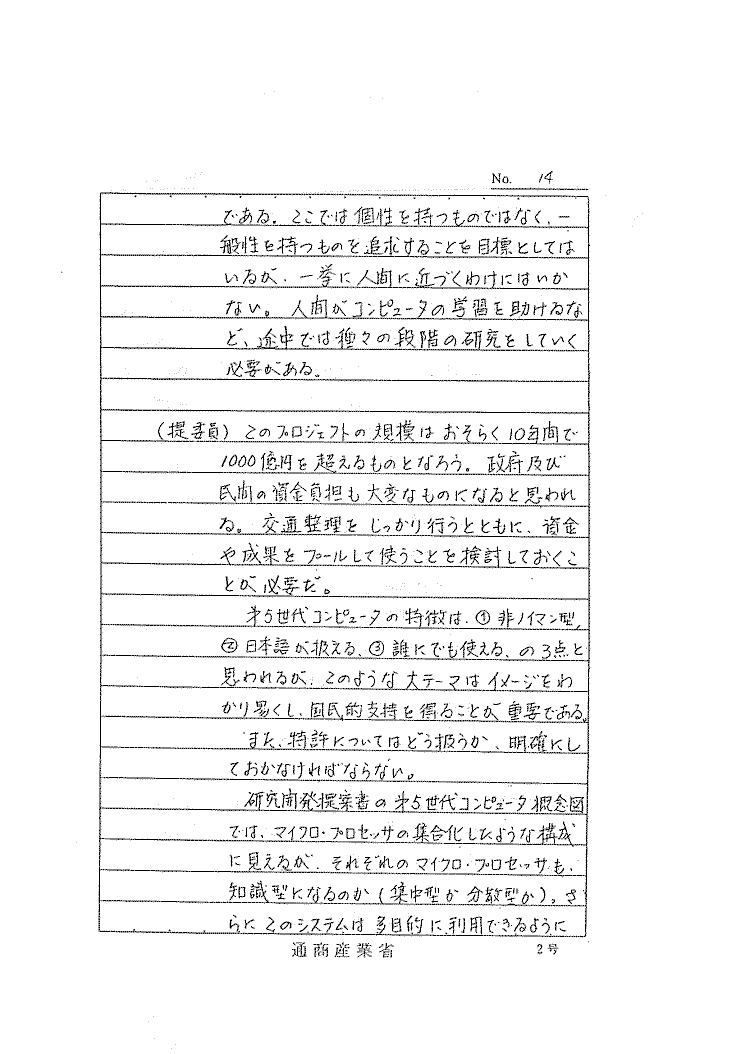 No. 14
である。ここでは個性を持つものではなく、一
般性を持つものを追求することを目標としては
いるが、一挙に人間に近づくわけにはいか
ない。人間がコンピュータの学習を助けるな
ど、途中では種々の段階の研究をしていく
必要がある。
(提委員) このプロジェクトの規模はおそらく10年間で
1000億円を超えるものとなろう。政府及び
民間の資金負担も大変なものになると思われ
る。交通整理をしっかり行うとともに、資金
や成果をプールして使うことを検討しておくこ
とが必要だ。
第5世代コンピュータの特徴は、①非ノイマン型、
②日本語が扱える、③誰にでも使える、の3点と
思われるが、このような大テーマはイメージをわ
かり易くし、国民的支持を得ることが重要である。
また、特許についてはどう扱うか、明確にし
ておかなければならない。
研究開発提案書の第5世代コンピュータ概念図
では、マイクロ・プロセッサの集合化したような構成
に見えるが、それぞれのマイクロ・プロセッサも、
知識型になるのか(集中型か分散型か)。さ
らにこのシステムは多目的に利用できるように
通商産業省 2号